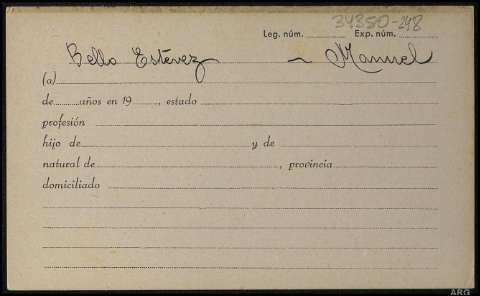 34350-248
Leg. núm. Exp. núm.
Bello Estévez - Manuel
(a)
de años en 19 , estado
profesión
hijo de y de
natural de , provincia
domiciliado
ARG